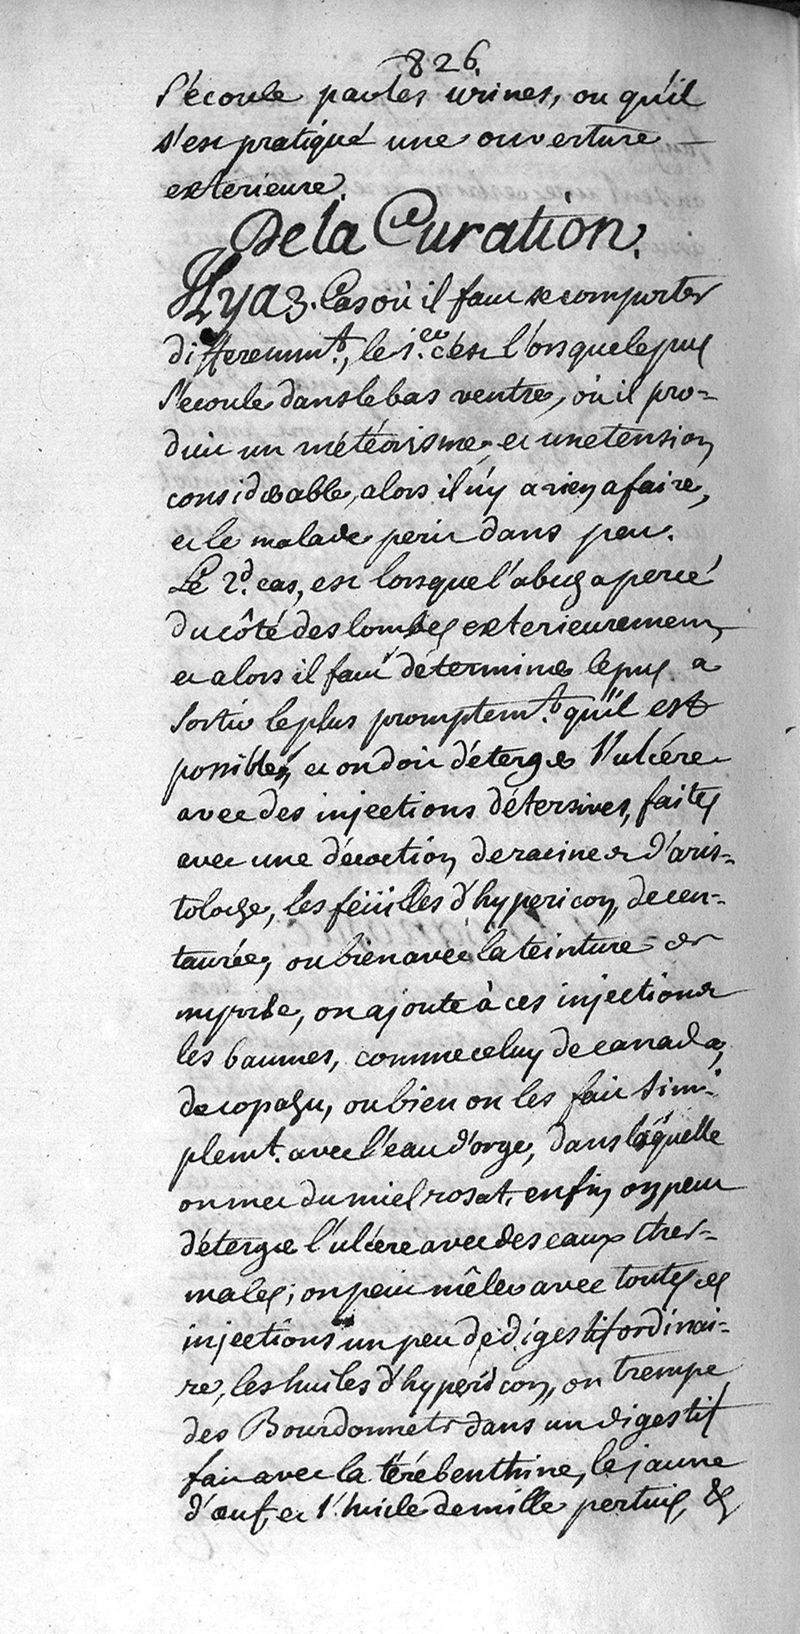 826.
s'écoule par les urines, ou qu'il
s'est pratiqué une ouverture
exterieure.
De la Curation.
Il y a 3. Cas où il faut se comporter
differemmt., le 1.er c'est l'orsque le pus
s'ecoule dans le bas ventre, où il pro-
duit un météorisme et une tension
considerable, alors il n'y a rien a faire,
et le malade perit dans peu.
Le 2d. cas, est lorsque l'abcés a percé
du côté des lombes exterieurement,
et alors il faut déterminer le pus a
sortir le plus promptemt. qu'il est
possible, et on doit déterger l'ulcére
avec des injections détersives, faites
avec une décoction de racine d'aris-
toloche, les feüilles d'hypericon, de cen-
taurée, ou bien avec la teinture de
myrrhe, on ajoute à ces injections
les baumes, comme celuy de canada,
de copahu, ou bien on les fait sim-
plemt. avec l'eau d'orge, dans laquelle
on met du miel rosat, enfin on peut
déterger l'ulcére avec des eaux ther-
males; on peut mêler avec toutes ces
injections un peu de digestif ordinai-
re, les huiles d'hypericon, on trempe
des Bourdonnets dans un digestif
fait avec la térébenthine, le jaune
d'œuf, et l'huile de mille pertuis, &